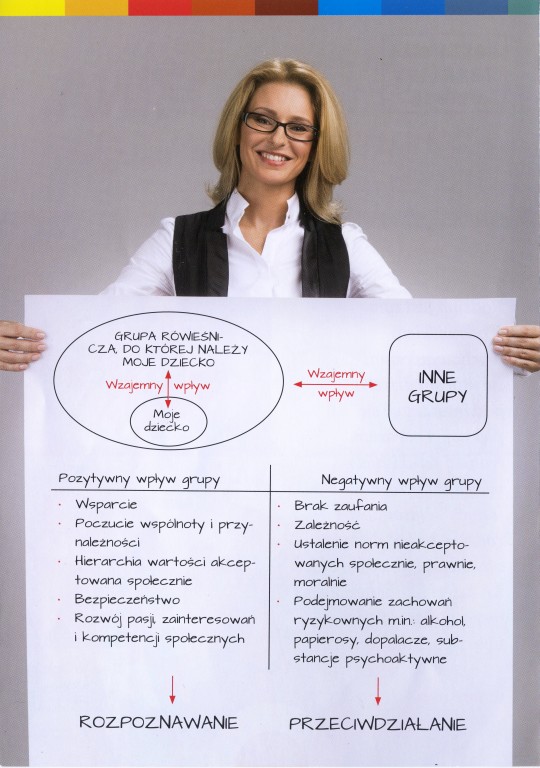 GRUPA RÓWIEŚNI-
CZA, DO KTÓREJ NALEŻY
MOJE DZIECKO
Wzajemny wpływ
Moje
dziecko
Wzajemny
wpływ
INNE
GRUPY
Pozytywny wpływ grupy
· Wsparcie
· Poczucie wspólnoty i przy-
należności
· Hierarchia wartości akcep-
towana społecznie
· Bezpieczeństwo
· Rozwój pasji, zainteresowań
i kompetencji społecznych
ROZPOZNAWANIE
Negatywny wpływ grupy
· Brak zaufania
· Zależność
· Ustalenie norm nieakcepto-
wanych społecznie, prawnie,
moralnie
· Podejmowanie zachowań
ryzykownych m.in.: alkohol,
papierosy, dopalacze, sub-
stancje psychoaktywne
PRZECIWDZIAŁANIE